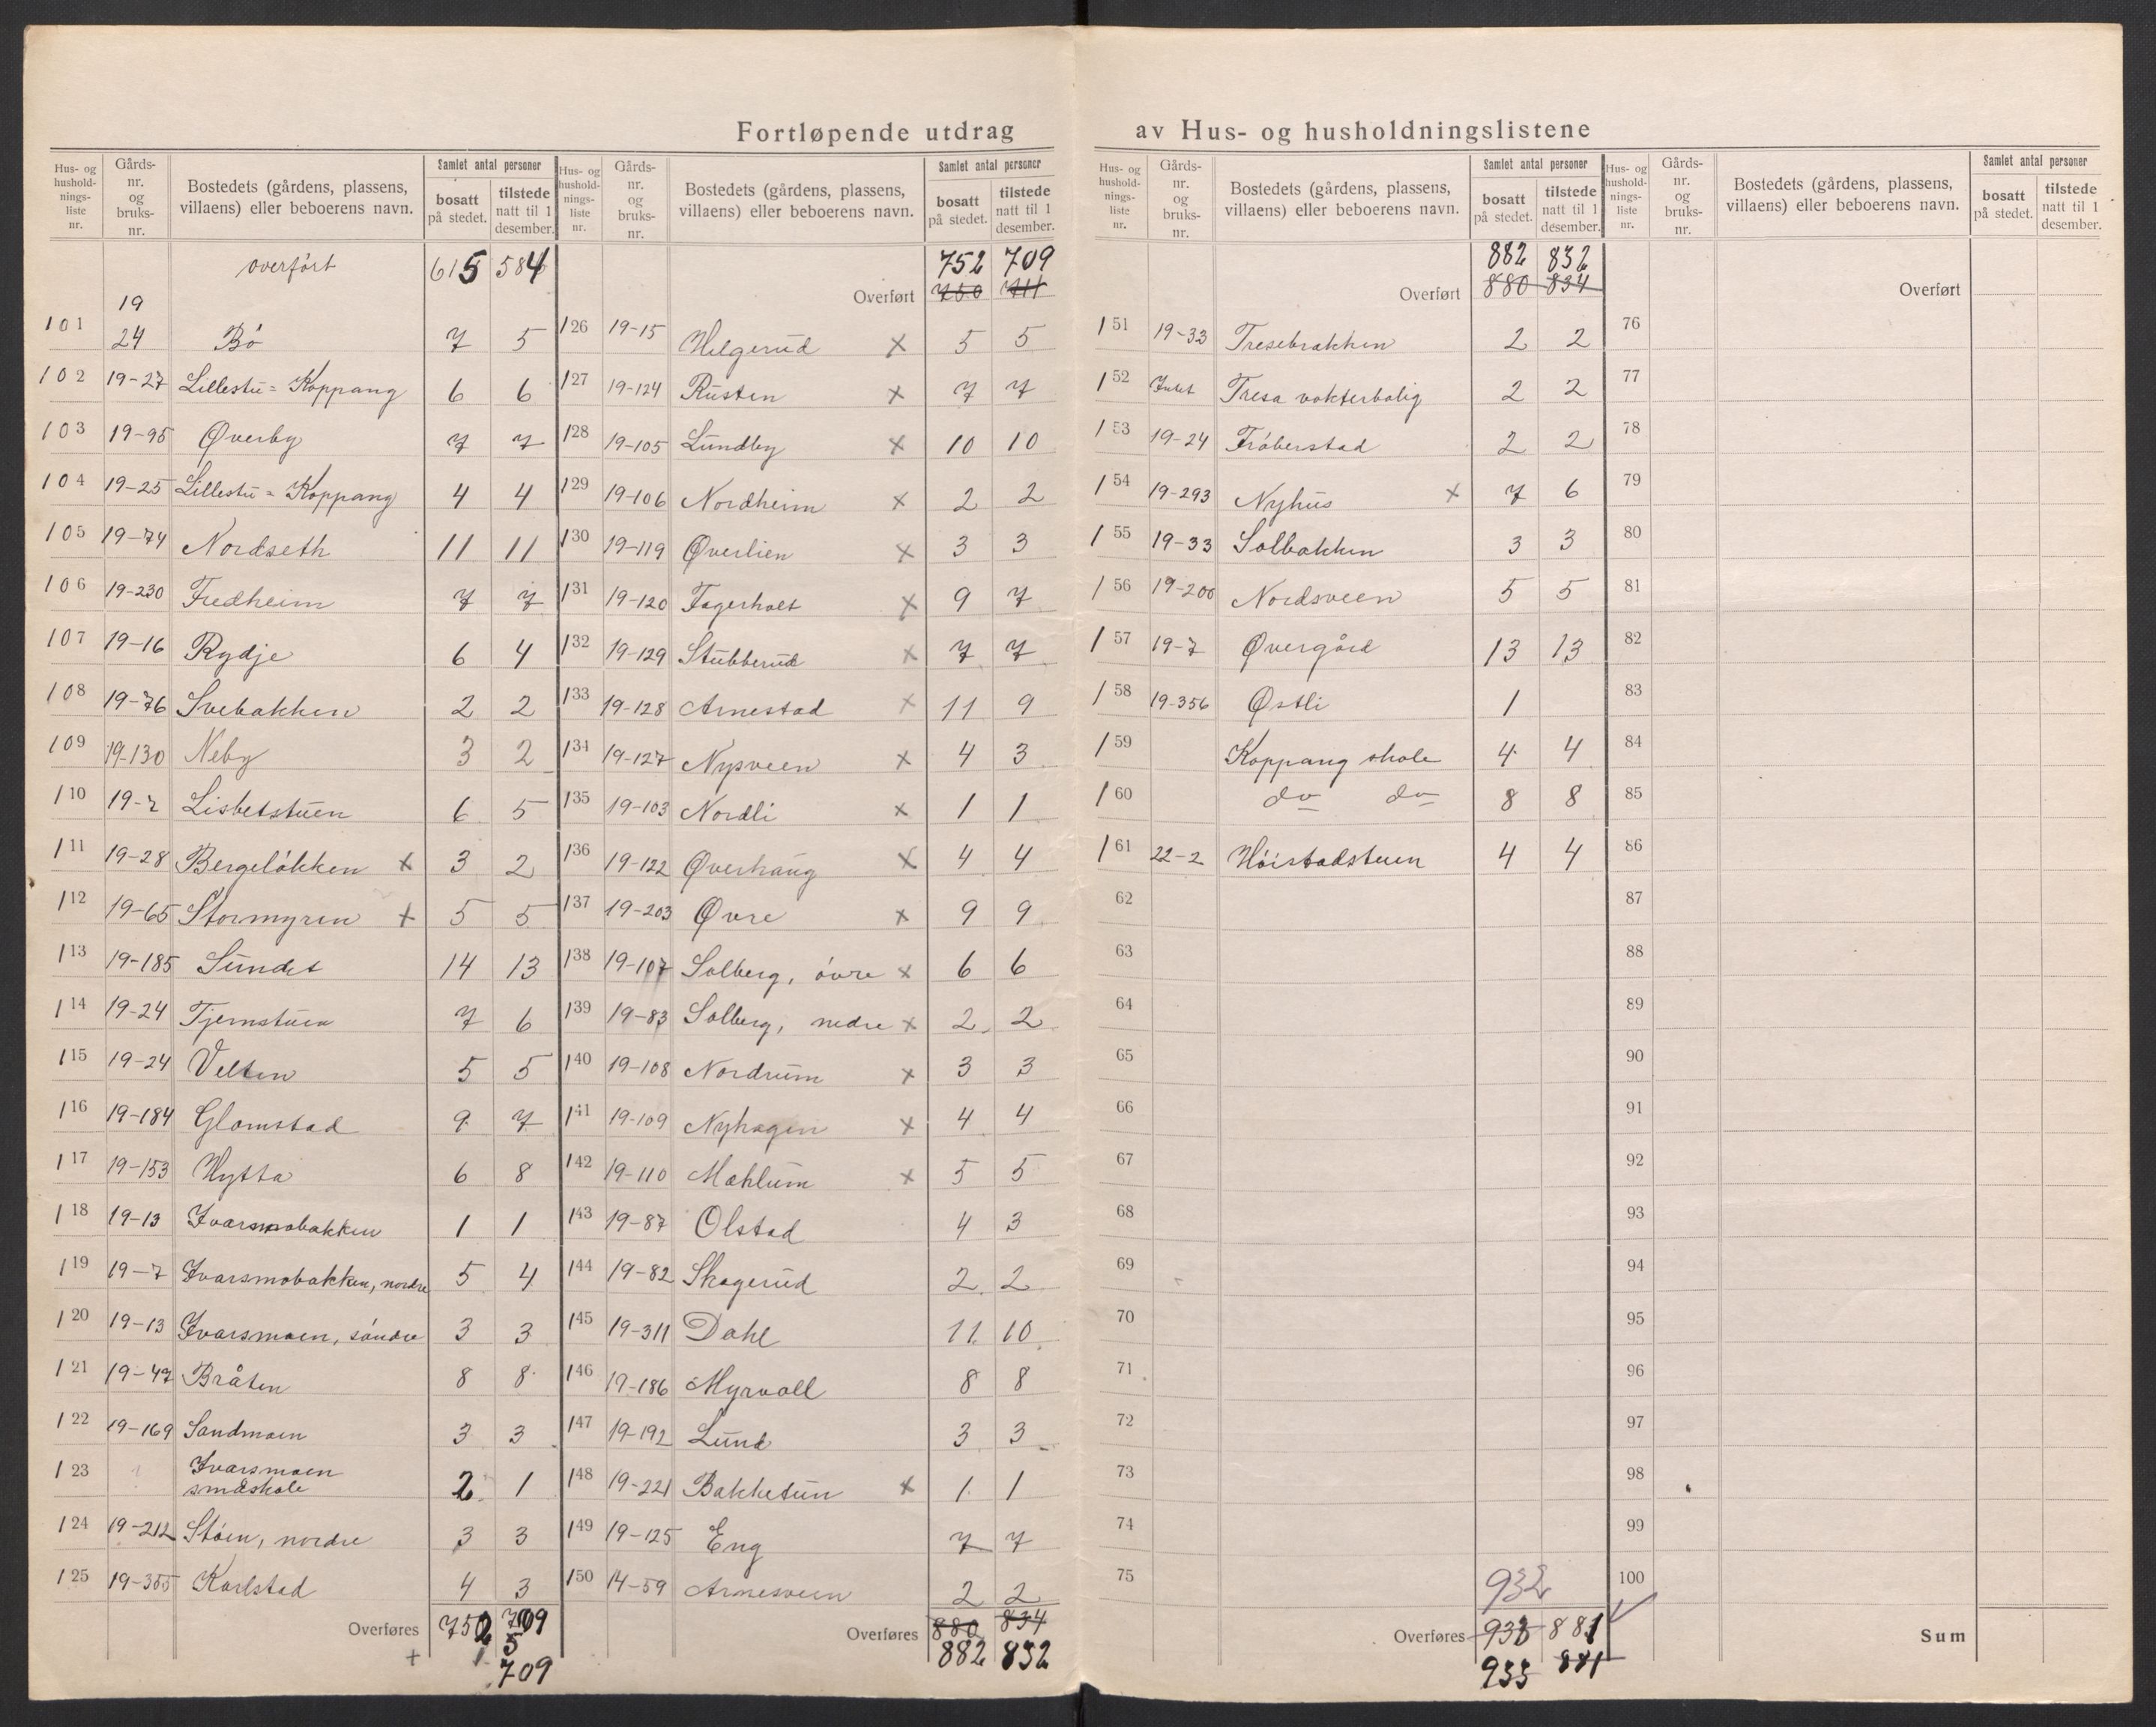 Fortløpende utdrag av Hus- og husholdningslistene
Hus- og hushold- nings- liste nr. Gårds- nr. og bruks- nr. Bostedets (gårdens, plassens, villaens) eller beboerens navn. Samlet antal personer bosatt på stedet. tilstede natt til 1 desember.
overført 615 584
101 19 24 Bö 7 5
102 19-27 Lillestu = Koppang 6 6
103 19-95 Øverby 7 7
104 19-25 Lillestu = Koppang 4 4
105 19-74 Nordseth 11 11
106 19-230 Fredheim 7 7
107 19-16 Rydje 6 4
108 19-76 Svebakken 2 2
109 19-130 Neby 3 2
110 19-2 Lisbetstuen 6 5
111 19-28 Bergelökken x 3 2
112 19-65 Stormyren x 5 5
113 19-185 Sundet 14 13
114 19-24 Tjernstuen 7 6
115 19-24 Velten 5 5
116 19-184 Glomstad 9 7
117 19-153 Hytta 6 8
118 19-13 Ivarsmobakken 1 1
119 19-7 Ivarsmobakken, nordre 5 4
120 19-13 Ivarsmoen, söndre 3 3
121 19-47 Bråten 8 8
122 19-169 Sandmoen 3 3
123 Ivarsmoen småskole 2 1
124 19-212 Stöen, nordre 3 3
125 19-355 Karlstad 4 3
Overføres 752 709
5
+ 709
Hus- og hushold- nings- liste nr. Gårds- nr. og bruks- nr. Bostedets (gårdens, plassens, villaens) eller beboerens navn. Samlet antal personer bosatt på stedet. tilstede natt til 1 desember.
752 709
Overført 750 711
126 19-15 Helgerud x 5 5
127 19-124 Rusten x 7 7
128 19-105 Lundby x 10 10
129 19-106 Nordheim x 2 2
130 19-119 Øverlien x 3 3
131 19-120 Fagerholt x 9 7
132 19-129 Stubberud x 7 7
133 19-128 Arnestad x 11 9
134 19-127 Nysveen x 4 3
135 19-103 Nordli x 1 1
136 19-122 Øverhaug x 4 4
137 19-203 Øvre x 9 9
138 19-107 Solberg, övre x 6 6
139 19-83 Solberg, nedre x 2 2
140 19-108 Nordrum x 3 3
141 19-109 Nyhagen x 4 4
142 19-110 Mæhlum x 5 5
143 19-87 Olstad 4 3
144 19-82 Skogerud 2 2
145 19-311 Dahl 11 10
146 19-186 Myrvoll 8 8
147 19-192 Lund 3 3
148 19-221 Bakketun x 1 1
149 19-125 Eng 7 7
150 14-59 Arnesveen 2 2
Overføres 880 834
882 832
Hus- og hushold- nings- liste nr. Gårds- nr. og bruks- nr. Bostedets (gårdens, plassens, villaens) eller beboerens navn. Samlet antal personer bosatt på stedet. tilstede natt til 1 desember.
882 832
Overført 880 834
151 19-33 Tresebakken 2 2
152 Tresa vokterbolig 2 2
153 19-24 Fröberstad 2 2
154 19-293 Nyhus x 7 6
155 19-33 Solbakken 3 3
156 19-200 Nordsveen 5 5
157 19-7 Øvergård 13 13
158 19-356 Østli 1
159 Koppang skole 4 4
160 do do 8 8
161 22-2 Höistadstuen 4 4
62
63
64
65
66
67
68
69
70
71
72
73
74
75
932
Overføres 933 881
933 881
Hus- og hushold- nings- liste nr. Gårds- nr. og bruks- nr. Bostedets (gårdens, plassens, villaens) eller beboerens navn. Samlet antal personer bosatt på stedet. tilstede natt til 1 desember.
Overført
76
77
78
79
80
81
82
83
84
85
86
87
88
89
90
91
92
93
94
95
96
97
98
99
100
Sum